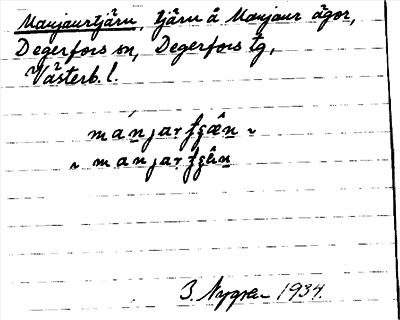 Manjaurtjärn, tjärn å Manjaur ägor,
Degerfors sn, Degerfors tg,
Västerb. l.
manjarʃɕæ̂n ~
~ manjarʃɕên
3. Nygren 1934.